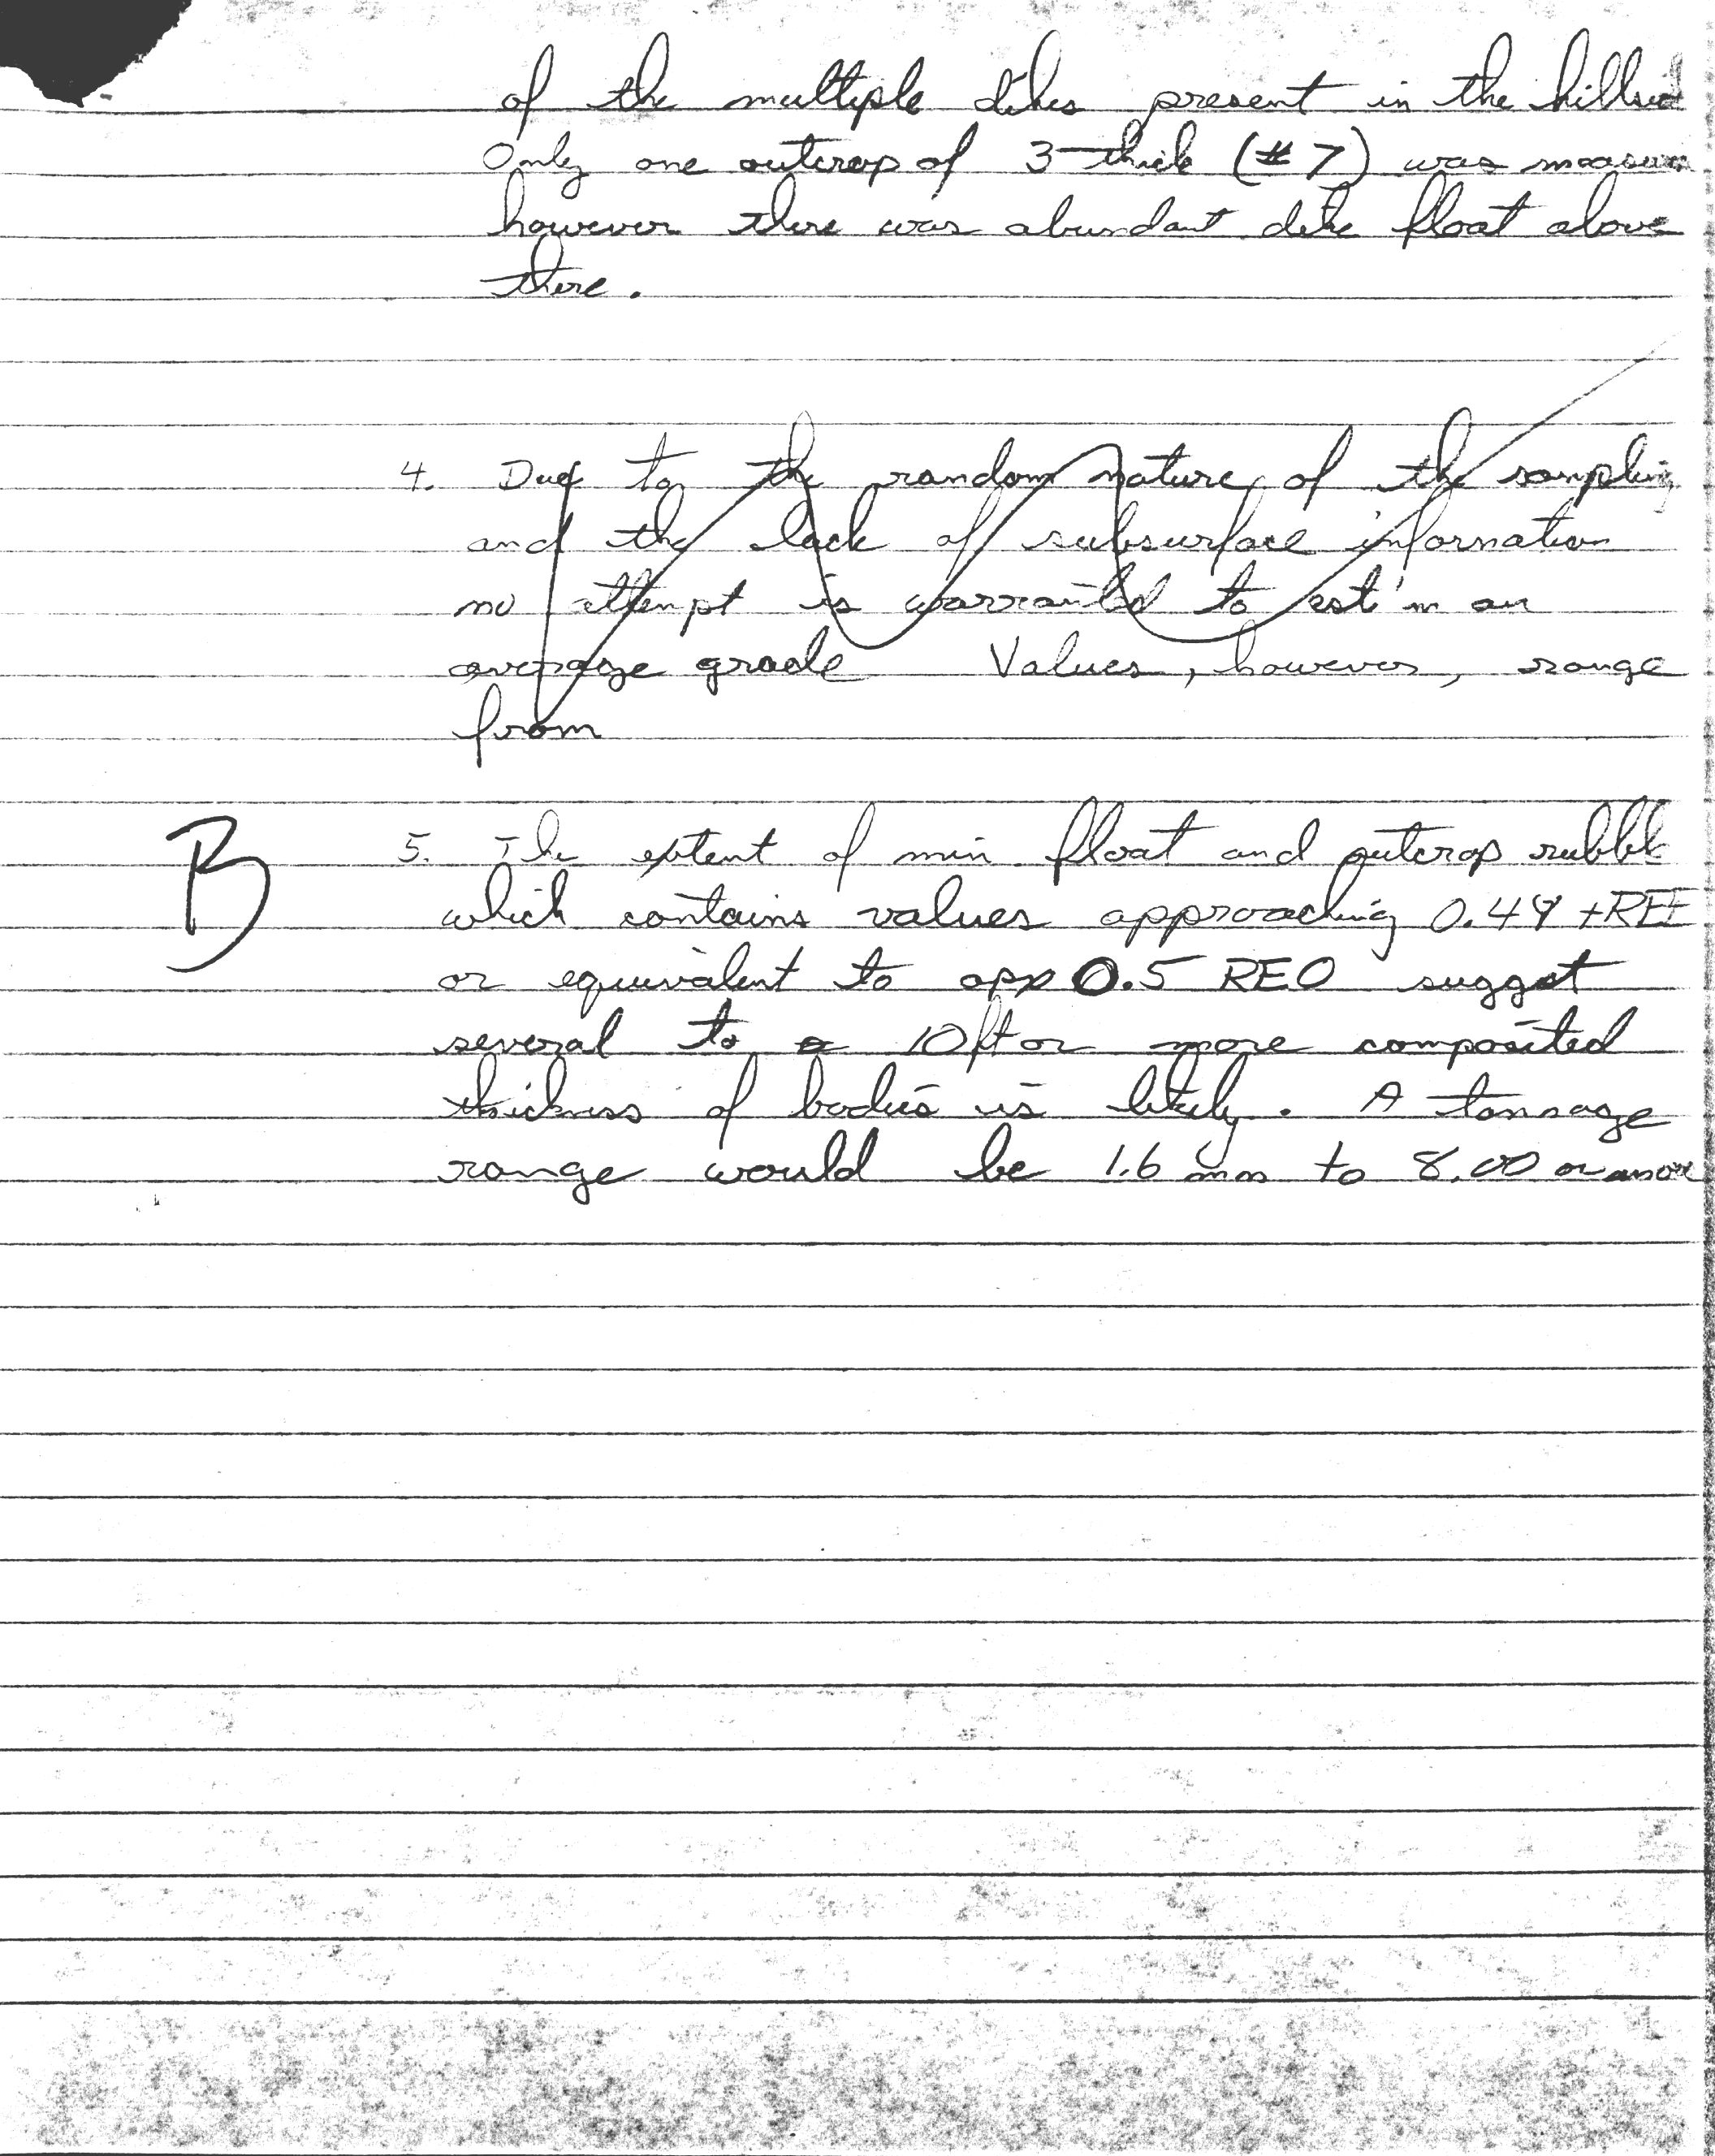 of the multiple dikes present in the hillsid
Only one outcrop of 3 thick (#7) was measur
however there was abundant dike float above
there.
4. Due to the random nature of the sampling
and the lack of subsurface information
no attempt is warranted to est'm an
average grade Values, however, range
from
B 5. The extent of min float and outcrop rubble
which contains values approaching 0.4% +REE
or equivalent to apx 0.5 REO suggst
several to 10 ft or more composited
thickness of bodies is likely. A tonnage
range would be 1.6 mm to 8.00 or more